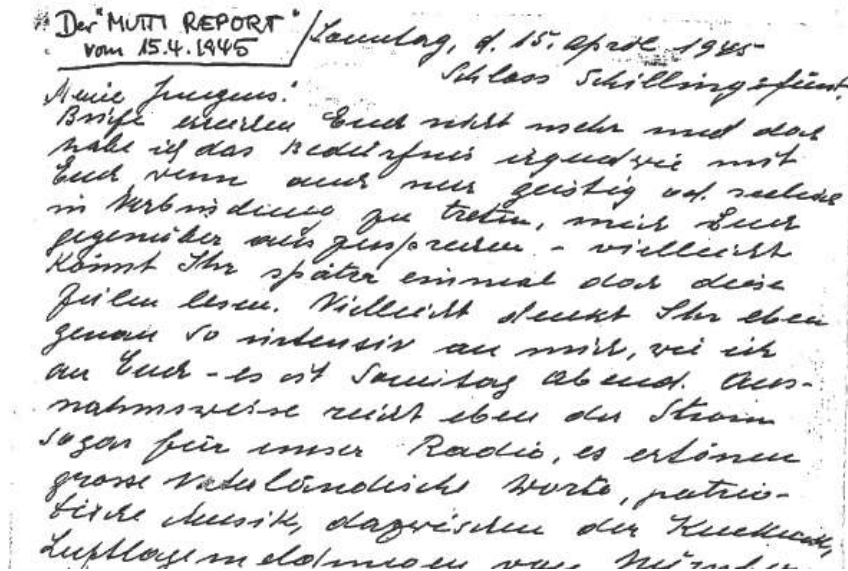 Der "MUTTI REPORT"
vom 15.4.1945
Sonntag, d. 15. April 1945
Schloss Schillingsfürst.
Meine Jungens!
Briefe erreichen Euch nicht mehr und doch
habe ich das Bedürfnis irgendwie mit
Euch wenn auch nur geistig od. seelisch
in Verbindung zu treten, mich Euch
gegenüber auszusprechen - vielleicht
könnt Ihr später einmal doch diese
Zeilen lesen. Vielleicht denkt Ihr eben
genau so intensiv an mich, wie ich
an Euch - es ist Sonntag Abend. Aus-
nahmsweise reicht eben der Strom
sogar für unser Radio, es ertönen
grosse Vaterländische Worte, patrio-
tische Musik, dazwischen der Kuckuck,
Luftlagemeldungen von